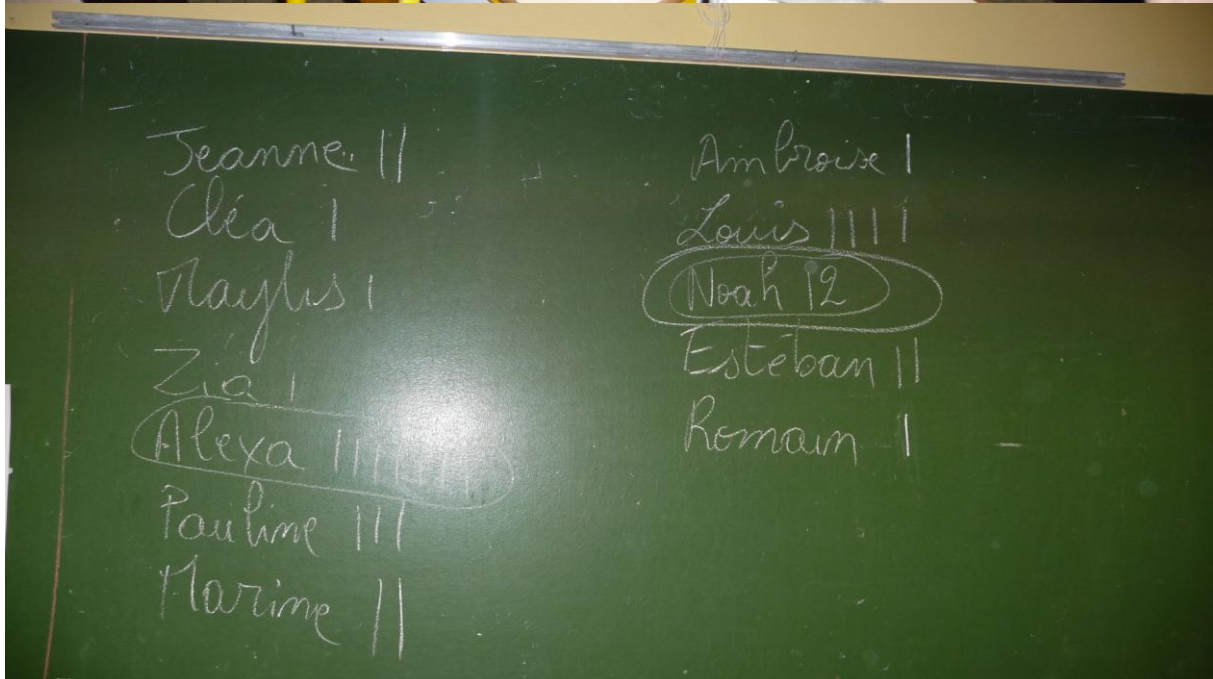 Jeanne ||
Cléa |
Maylis |
Zia |
Alexa
Pauline |||
Marine ||
Ambroise |
Louis ||||
Noah 12
Estéban ||
Romain |